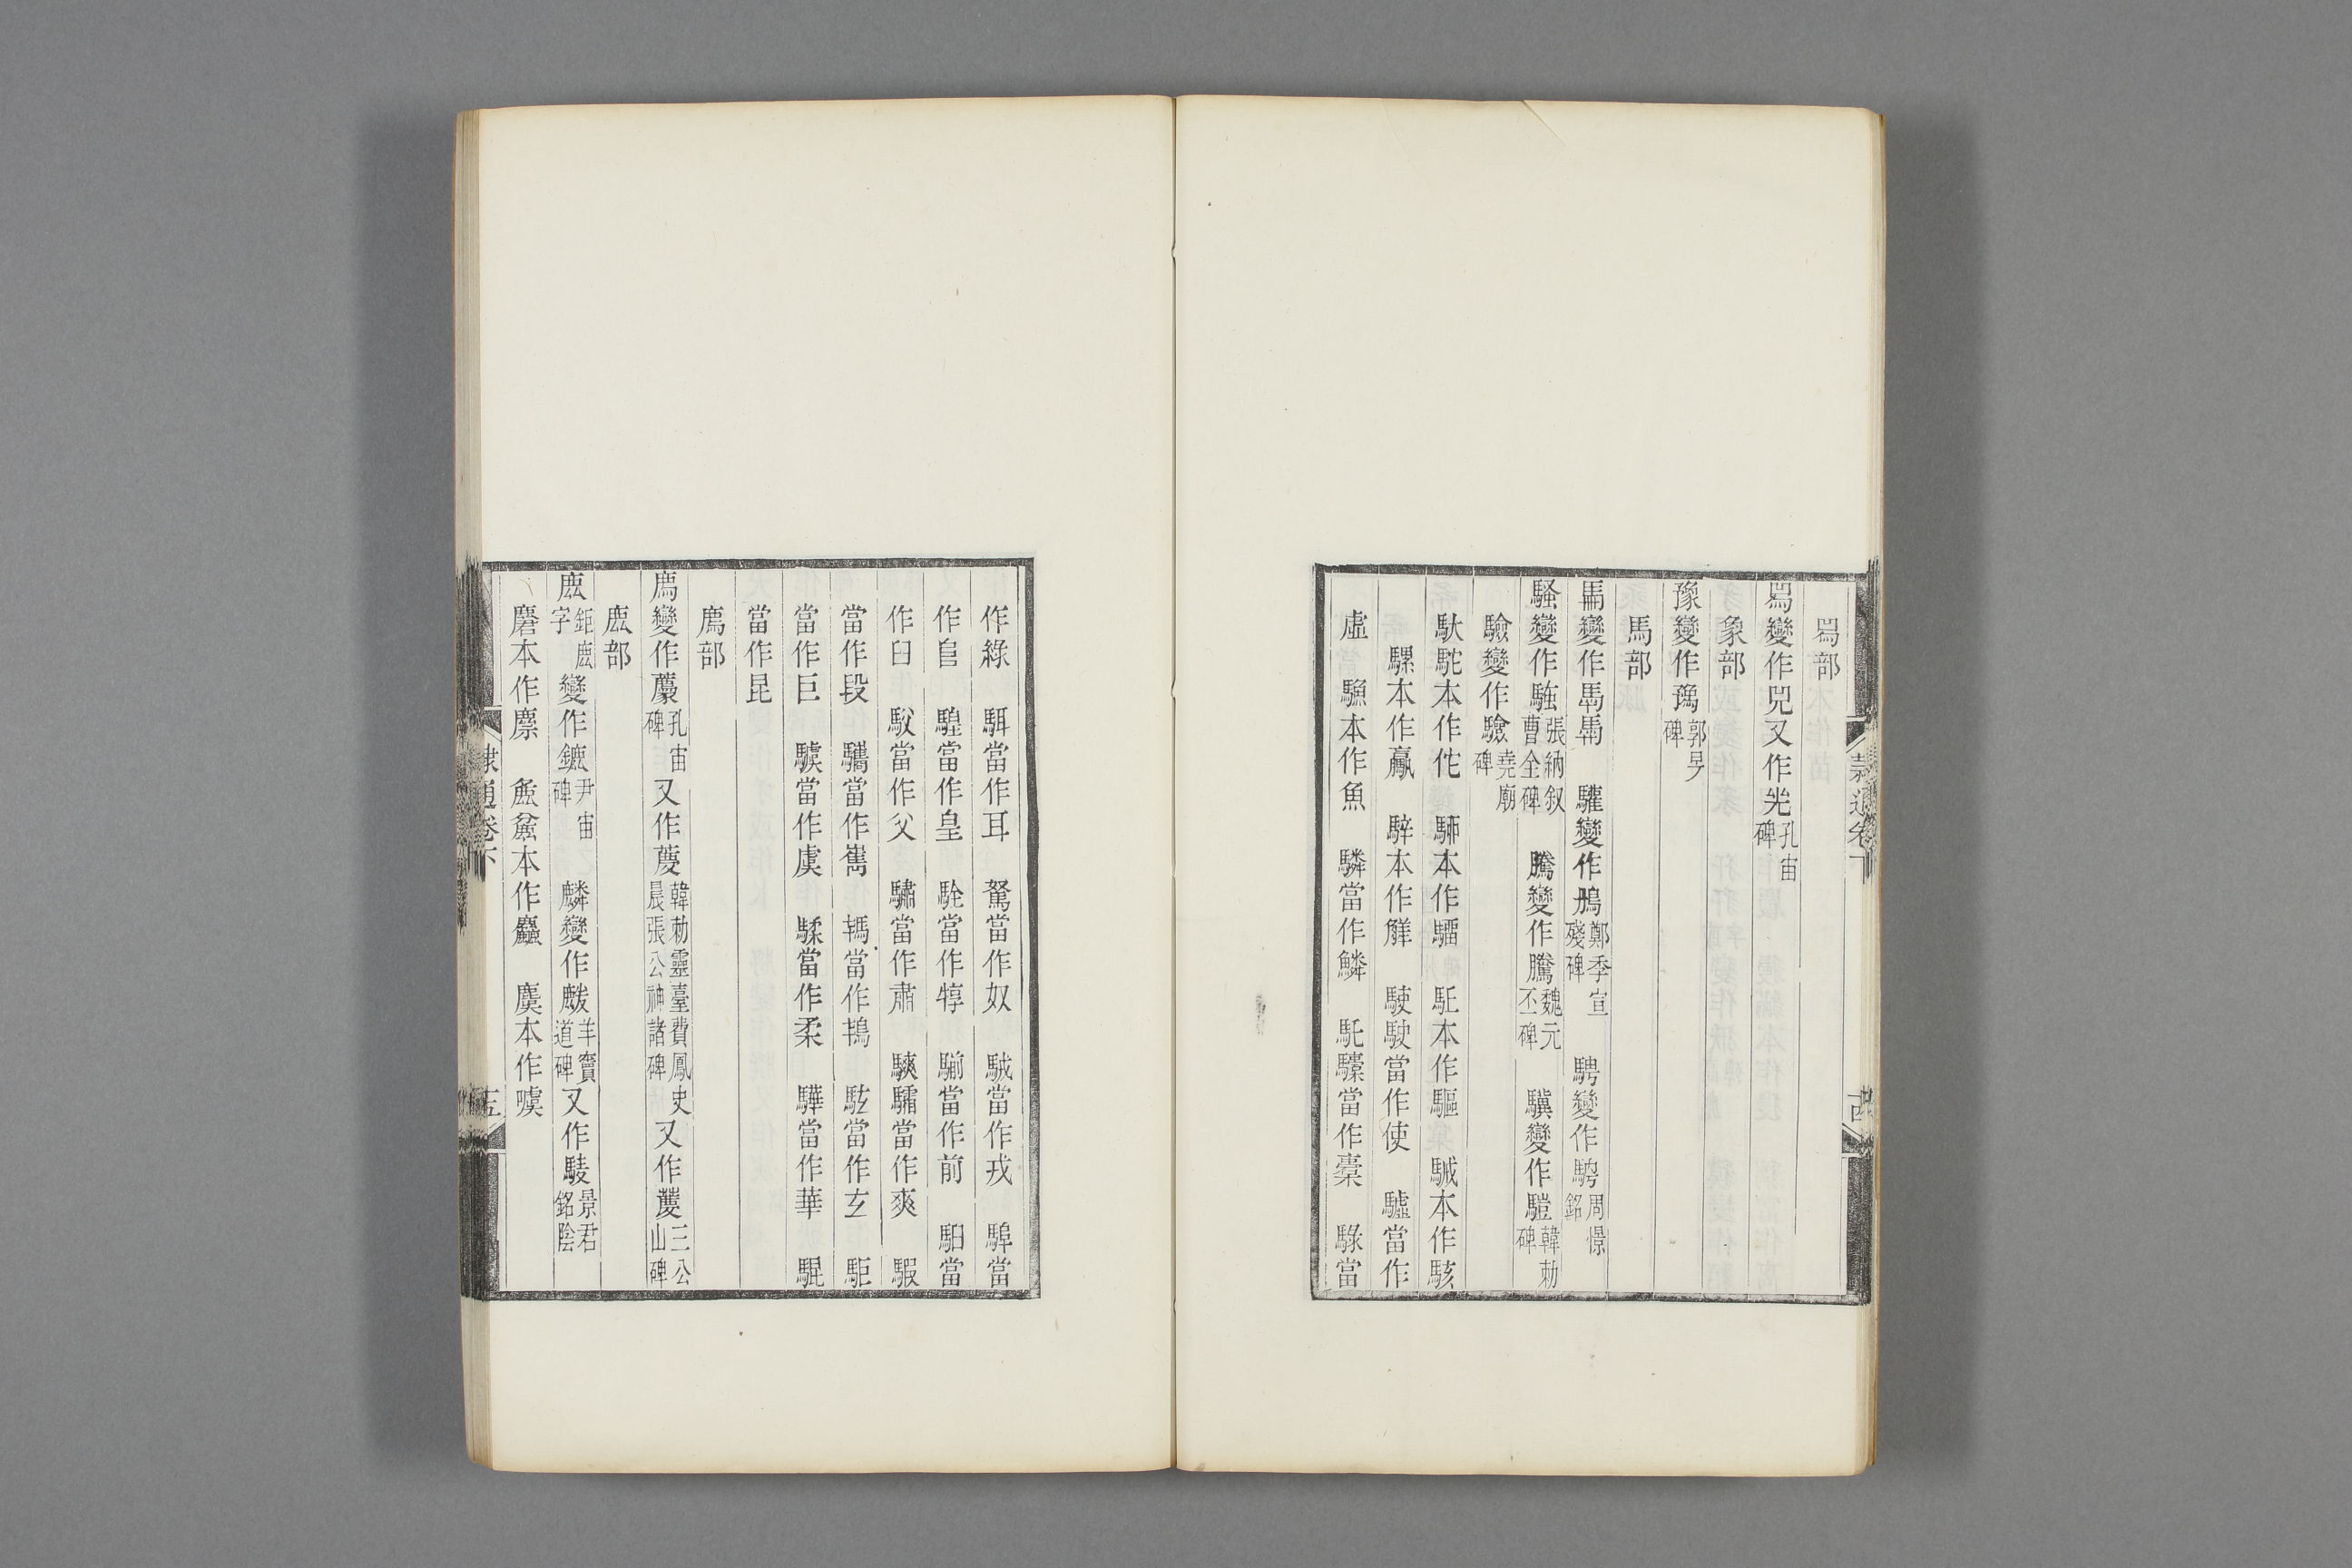 𤉡部
𤉡變作兕又作光孔宙碑
象部
豫變作䂊郭旻碑
馬部
馬變作馬馬 驩變作鴅鄭季宣殘碑 騁變作騁周憬銘
騷變作騷張納叙曹全碑 騰變作騰魏元丕碑 驥變作驥韓勅碑
驗變作驗堯廟碑
馱駝本作佗 本作驑 駈本作驅 駴本作駭
騾本作驘 騂本作觲 駛駛當作使 驉當作
虛 䲣本作魚 驎當作鱗 馲驝當作橐 騄當
作綠 駬當作耳 駑當作奴 駥當作戎 騲當
作𠂤 騜當作皇 駩當作犉 騚當作前 當
作臼 駁當作父 驌當作肅 騻驦當作爽 騢
當作段 驨當作巂 䮗當作鴇 駭當作玄 駏
當作巨 驉當作虞 騥當作柔 驊當作華 騉
當作昆
廌部
廌變作孔宙碑又作慶韓勅靈臺費鳳史晨張公神諸碑又作三公山碑
鹿部
鹿鉅鹿字變作鏕尹宙碑 麟變作羊竇道碑又作景君銘陰
麏本作麇 麤本作麤 麌本作噳
隸通卷下